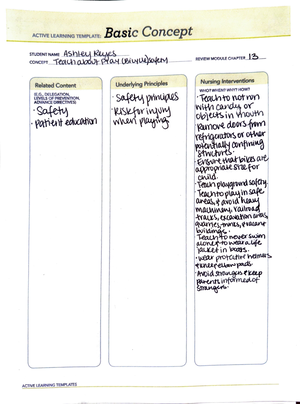 ACTIVE LEARNING TEMPLATE: Basic Concept
STUDENT NAME Ashley Reyes
CONCEPT Teach about Play (Bicycle) Safety
REVIEW MODULE CHAPTER 13
Related Content
(E.G., DELEGATION,
LEVELS OF PREVENTION,
ADVANCE DIRECTIVES)
· Safety
· Patient education
Underlying Principles
· Safety principles
· Risk for injury
when playing
Nursing Interventions
WHO? WHEN? WHY? HOW?
· Teach to not run
with candy or
objects in mouth
· Remove doors from
refrigerators or other
potentially confining
structures.
· Ensure that bikes are
appropriate size for
child.
· Teach playground safety.
· Teach to play in safe
areas, & avoid heavy
machinery, railroad
tracks, excavation areas,
quarries, trunks, & vacant
buildings.
· Teach to never swim
alone & to wear a life
jacket in boats.
· wear protective helmets
& knee & elbow pads.
· Avoid strangers & keep
parents informed of
strangers.
ACTIVE LEARNING TEMPLATES